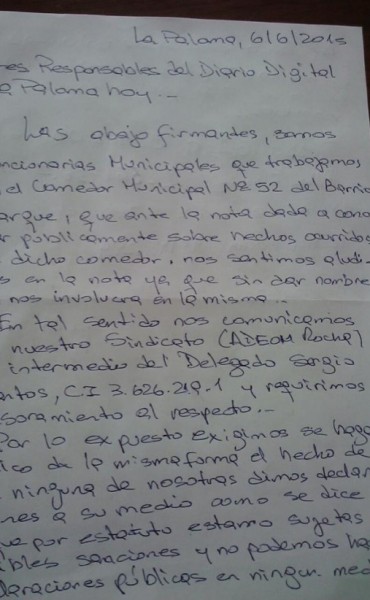 La Paloma, 6/6/2015
res Responsables del Diario Digital
a Paloma hoy._
Las abajo firmantes, somos
ncionarias Municipales que trabajamos
el Comedor Municipal Nº 52 del Barrio
arque, que ante la nota dada a cono
r publicamente sobre hechos ocurridos
dicho comedor, nos sentimos aludi
s en la nota ya que sin dar nombre
nos involucra en la misma._
En tal sentido nos comunicamos
nuestro Sindicato (ADEOM Rocha)
intermedio del Delegado Sergio
ntos, CI 3.626.219.1 y requirimos
soramiento al respecto._
Por lo expuesto exigimos se haga
ico de la misma forma el hecho de
ninguna de nosotras dimos declar
nes a su medio como se dice
ue por estatuto estamo sugetas
ibles sanciones y no podemos ha
laraciones públicas en ningun med